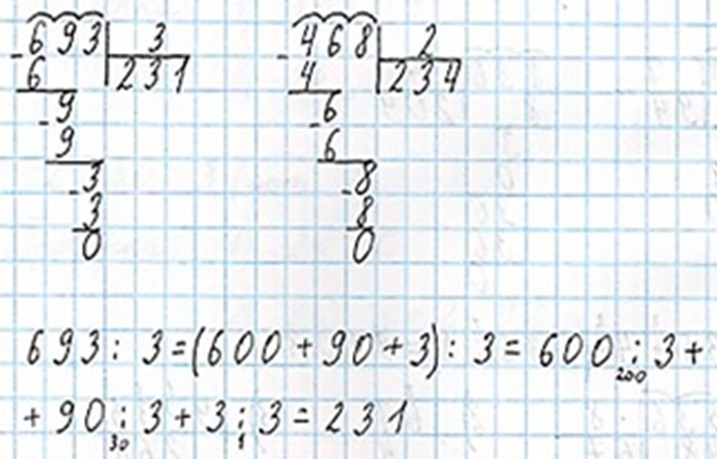 -693 3 -468 2
6 231 4 234
-9 -6
9 6
-3 -8
3 8
0 0
693 : 3 = (600 + 90 + 3) : 3 = 600 : 3 +
200
+ 90 : 3 + 3 : 3 = 231
30 1